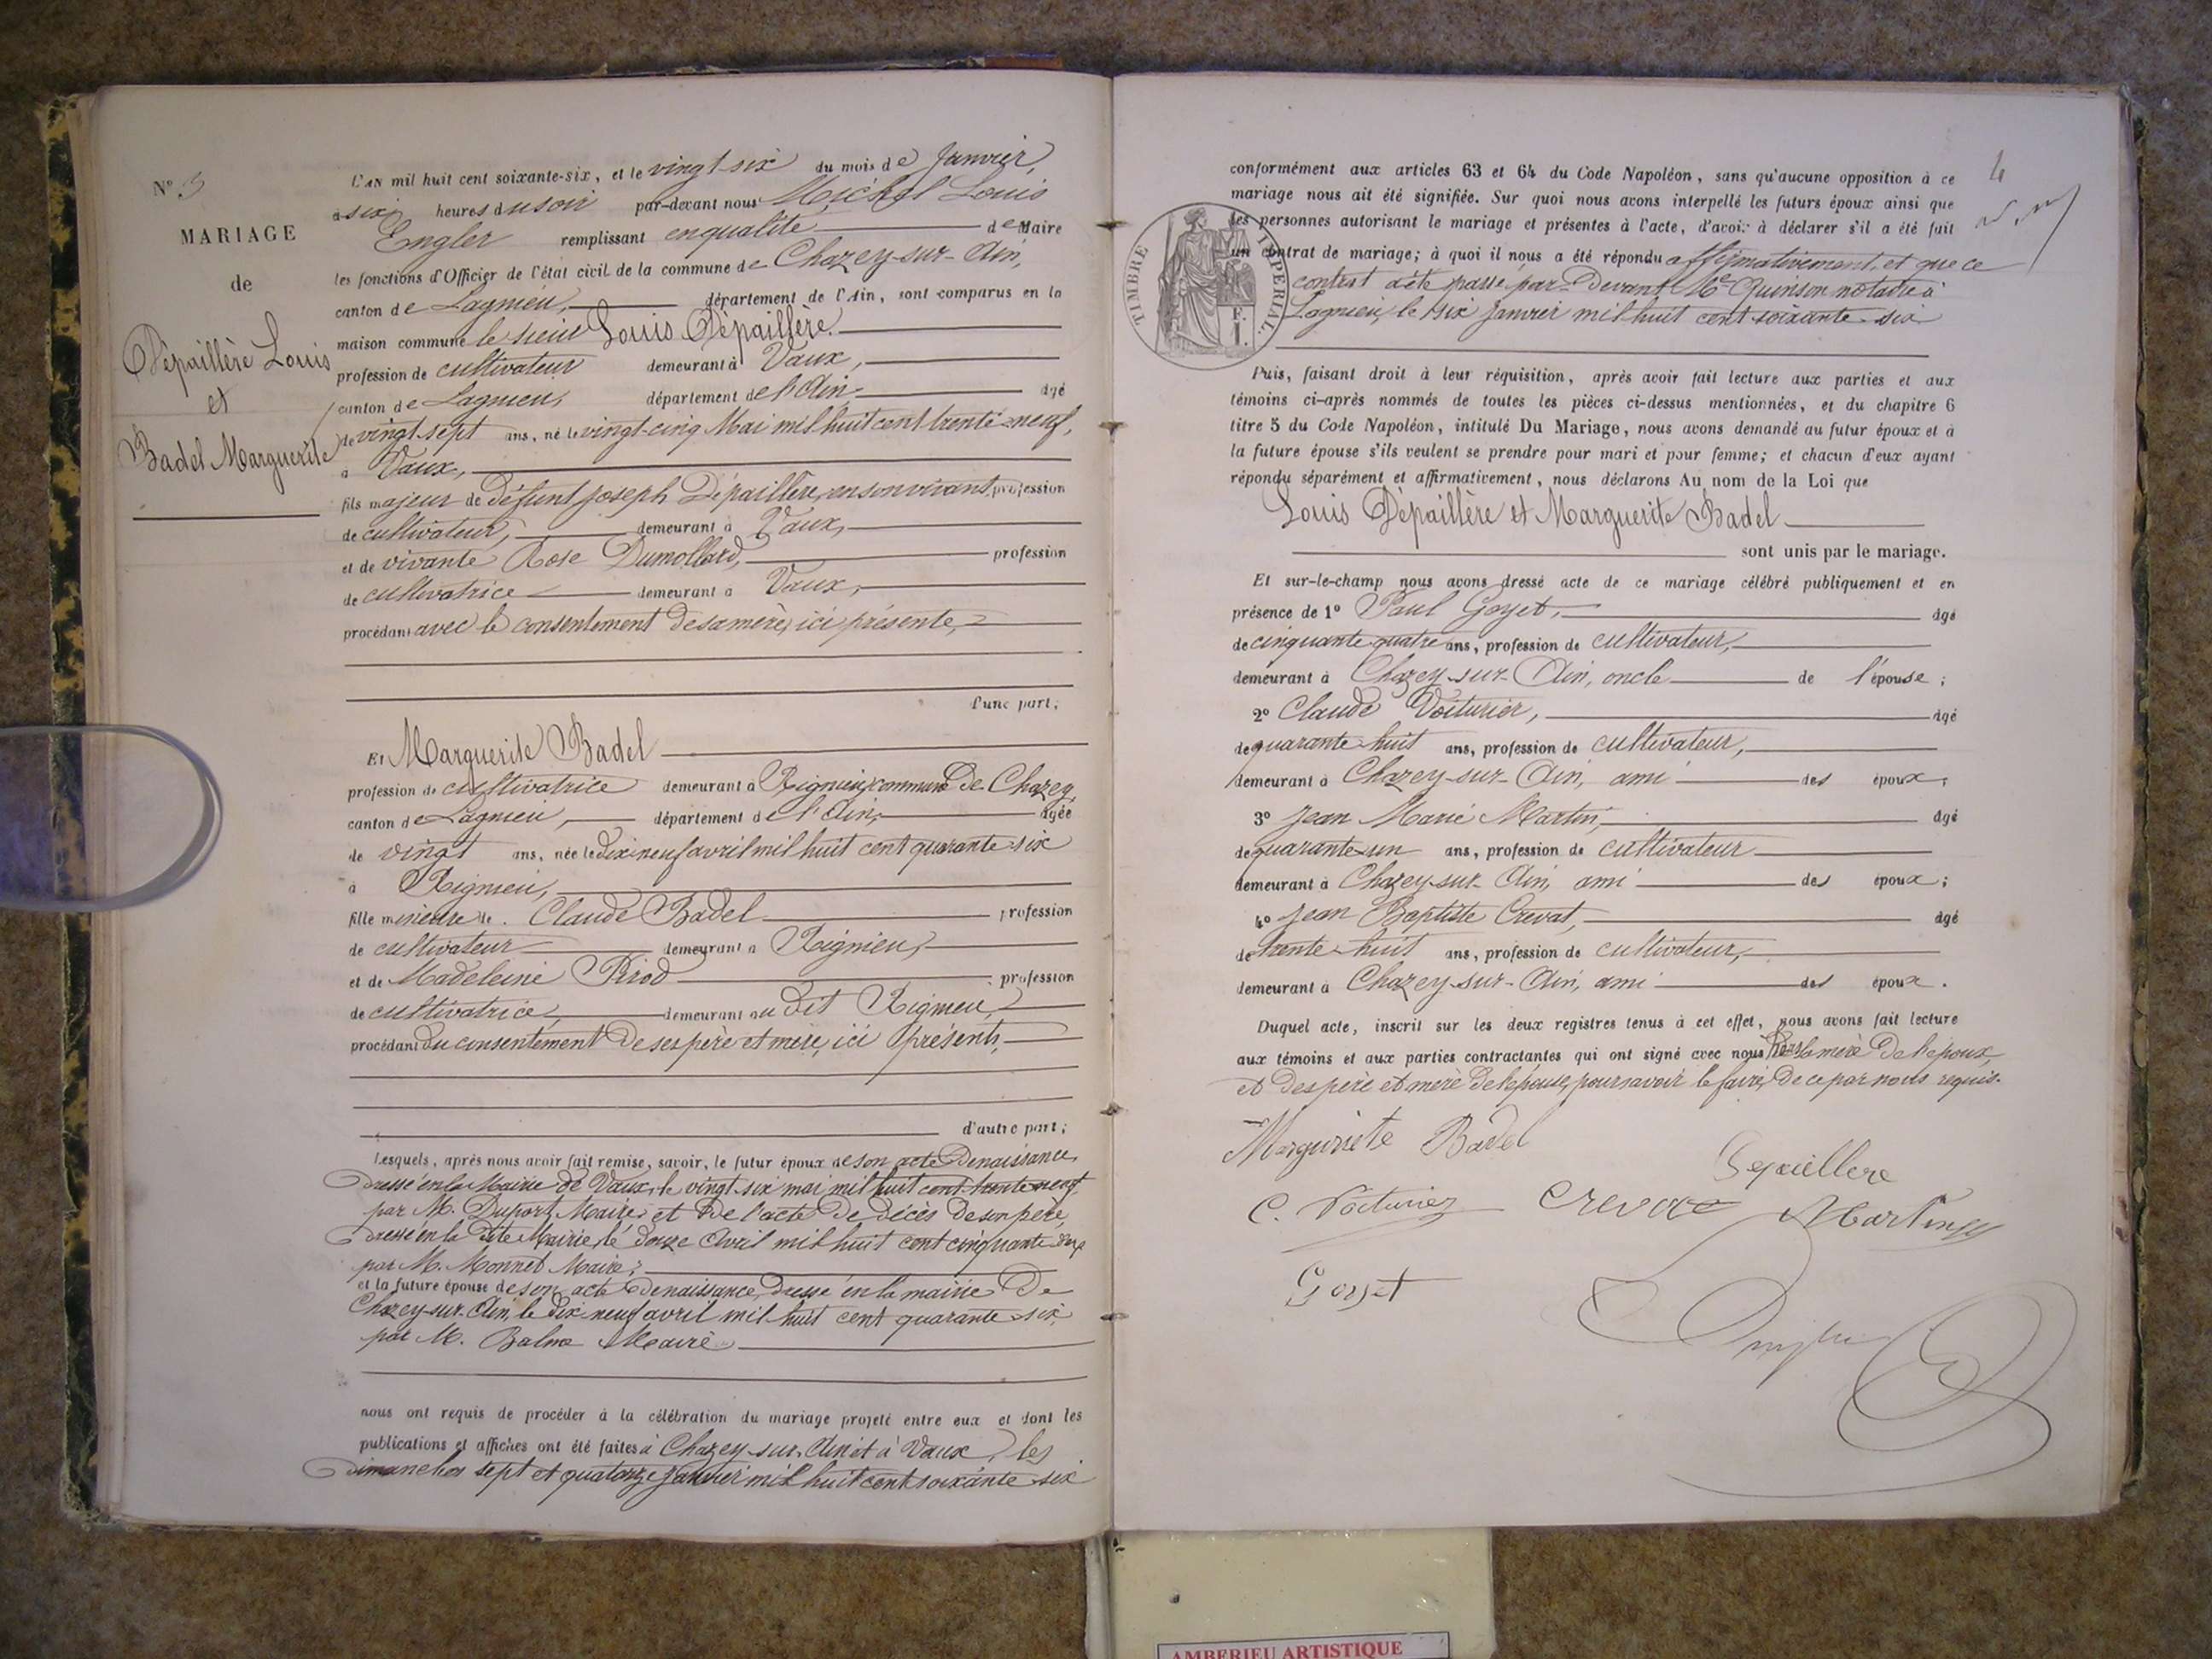 N° 3
MARIAGE
de
Dépaillère Louis
et
Badel Marguerite
L'AN mil huit cent soixante-six, et le vingt-six du mois de Janvier,
à six heures du soir par-devant nous Michel Louis
Engler remplissant en qualité de Maire
les fonctions d'Officier de l'état civil de la commune de Chazey-sur-Ain,
canton de Lagnieu, département de l'Ain, sont comparus en la
maison commune le sieur Louis Dépaillère.
profession de cultivateur demeurant à Vaux,
canton de Lagnieu, département de l'Ain âgé
de vingt-sept ans, né le vingt-cinq Mai mil huit cent trente-neuf,
à Vaux,
fils majeur de défunt Joseph Dépaillère, en son vivant, profession
de cultivateur, demeurant à Vaux,
et de vivante Rose Dumollard, profession
de cultivatrice demeurant à Vaux,
procédant avec le consentement de sa mère, ici présente,
d'une part;
Et Marguerite Badel
profession de cultivatrice demeurant à Rignieu, commune de Chazey,
canton de Lagnieu, département de l'Ain, âgée
de vingt ans, née le dix-neuf avril mil huit cent quarante-six
à Rignieu,
fille mineure de Claude Badel profession
de cultivateur demeurant à Rignieu,
et de Madeleine Pirod profession
de cultivatrice, demeurant au dit Rignieu,
procédant du consentement de ses père et mère, ici présents,
d'autre part;
Lesquels, après nous avoir fait remise, savoir, le futur époux de son acte de naissance
dressé en la Mairie de Vaux, le vingt-six mai mil huit cent trente-neuf,
par M. Duport, Maire; et de l'acte de décès de son père,
dressé en la dite Mairie, le douze Avril mil huit cent cinquante-deux
par M. Monnet Maire;
et la future épouse de son acte de naissance, dressé en la mairie de
Chazey-sur-Ain, le dix-neuf avril mil huit cent quarante-six,
par M. Balme Maire
nous ont requis de procéder à la célébration du mariage projeté entre eux et dont les
publications et affiches ont été faites à Chazey-sur-Ain et à Vaux, les
dimanches sept et quatorze Janvier mil huit cent soixante-six
4
conformément aux articles 63 et 64 du Code Napoléon, sans qu'aucune opposition à ce
mariage nous ait été signifiée. Sur quoi nous avons interpellé les futurs époux ainsi que
les personnes autorisant le mariage et présentes à l'acte, d'avoir à déclarer s'il a été fait
un contrat de mariage; à quoi il nous a été répondu affirmativement, et que ce
contrat a été passé par-devant Me Quinson notaire à
Lagnieu, le six Janvier mil huit cent soixante-six
TIMBRE IMPÉRIAL.
F.
1.
Puis, faisant droit à leur réquisition, après avoir fait lecture aux parties et aux
témoins ci-après nommés de toutes les pièces ci-dessus mentionnées, et du chapitre 6
titre 5 du Code Napoléon, intitulé Du Mariage, nous avons demandé au futur époux et à
la future épouse s'ils veulent se prendre pour mari et pour femme; et chacun d'eux ayant
répondu séparément et affirmativement, nous déclarons Au nom de la Loi que
Louis Dépaillère et Marguerite Badel
sont unis par le mariage.
Et sur-le-champ nous avons dressé acte de ce mariage célébré publiquement et en
présence de 1° Paul Goyet, âgé
de cinquante-quatre ans, profession de cultivateur,
demeurant à Chazey-sur-Ain, oncle de l'épouse;
2° Claude Voiturier, âgé
de quarante-huit ans, profession de cultivateur,
demeurant à Chazey-sur-Ain, ami des époux;
3° Jean Marie Martin, âgé
de quarante-un ans, profession de cultivateur
demeurant à Chazey-sur-Ain, ami des époux;
4° Jean Baptiste Crevat, âgé
de trente-huit ans, profession de cultivateur,
demeurant à Chazey-sur-Ain, ami des époux.
Duquel acte, inscrit sur les deux registres tenus à cet effet, nous avons fait lecture
aux témoins et aux parties contractantes qui ont signé avec nous hors la mère de l'époux,
et des père et mère de l'épouse, pour savoir le faire, de ce par nous requis.
Marguerite Badel
Depaillere
C. Voiturier Crevat Martin
Goyet
Engler
AMBERIEU ARTISTIQUE